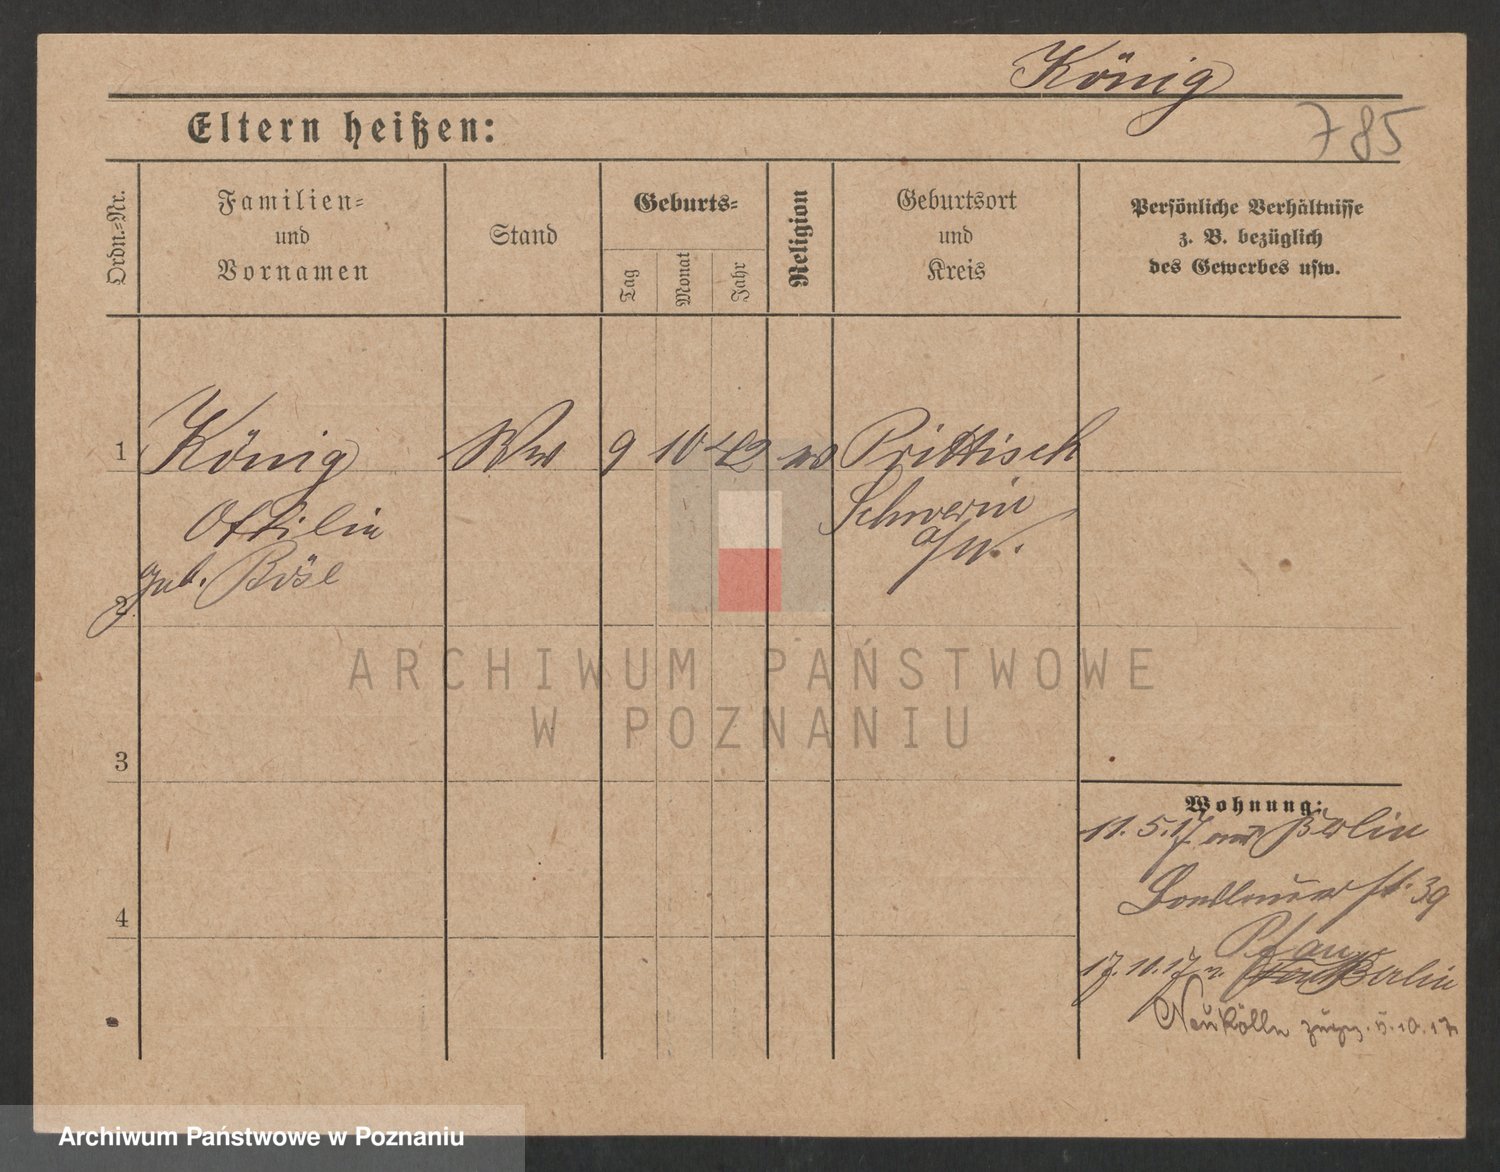 König
785
Eltern heißen:
Ordn.-Nr.
Familien-
und
Vornamen
Stand
Geburts-
Tag
Monat
Jahr
Religion
Geburtsort
und
Kreis
Persönliche Verhältnisse
z. B. bezüglich
des Gewerbes usw.
1 König Ww 9 10 42 Prittisch
Ottilie Schwerin
a/W.
geb. Böse
2
ARCHIWUM PAŃSTWOWE
W POZNANIU
3
Wohnung:
11. 5. 17. aus Berlin
st. 39
4
17. 10. 17 n. Berlin
Neukölln zugez. 5. 10. 17
Archiwum Państwowe w Poznaniu